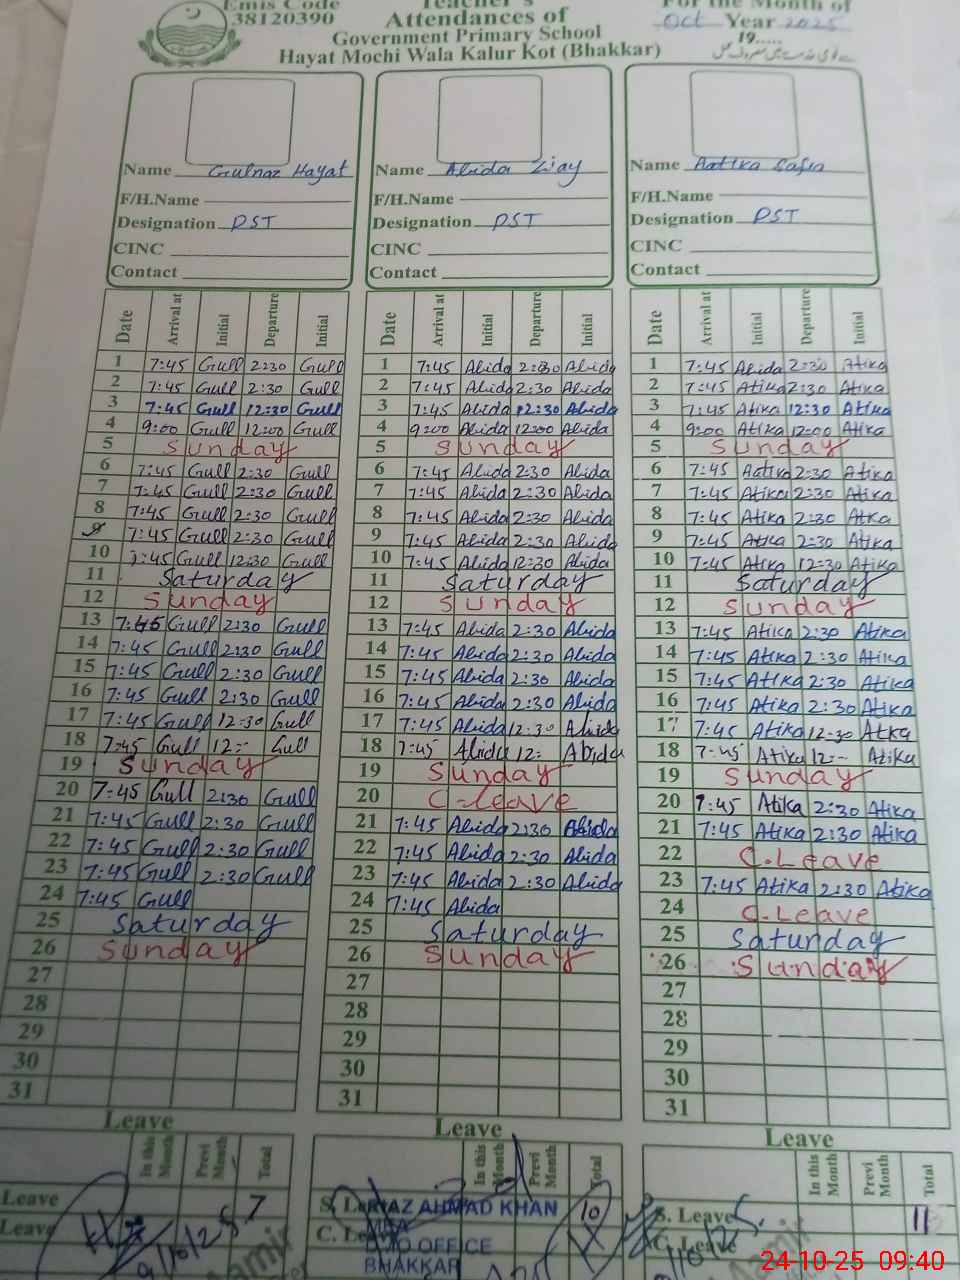 Emis Code
38120390
Teacher's
Attendances of
Government Primary School
Hayat Mochi Wala Kalur Kot (Bhakkar)
For the Month of
Oct Year 2025
19.....
Name Gulnaz Hayat
F/H.Name
Designation PST
CINC
Contact
Name Abida
F/H.Name
Designation PST
CINC
Contact
Name Aatika
F/H.Name
Designation PST
CINC
Contact
Date Arrival at Initial Departure Initial
1 7:45 Gull 2:30 Gull
2 7:45 Gull 2:30 Gull
3 7:45 Gull 12:30 Gull
4 9:00 Gull 12:00 Gull
5 Sunday
6 7:45 Gull 2:30 Gull
7 7:45 Gull 2:30 Gull
8 7:45 Gull 2:30 Gull
9 7:45 Gull 2:30 Gull
10 7:45 Gull 12:30 Gull
11 Saturday
12 Sunday
13 7:45 Gull 2:30 Gull
14 7:45 Gull 2:30 Gull
15 7:45 Gull 2:30 Gull
16 7:45 Gull 2:30 Gull
17 7:45 Gull 12:30 Gull
18 7:45 Gull 12:- Gull
19 Sunday
20 7:45 Gull 2:30 Gull
21 7:45 Gull 2:30 Gull
22 7:45 Gull 2:30 Gull
23 7:45 Gull 2:30 Gull
24 7:45 Gull
25 Saturday
26 Sunday
27
28
29
30
31
Date Arrival at Initial Departure Initial
1 7:45 Abida 2:30 Abida
2 7:45 Abida 2:30 Abida
3 7:45 Abida 12:30 Abida
4 9:00 Abida 12:00 Abida
5 Sunday
6 7:45 Abida 2:30 Abida
7 7:45 Abida 2:30 Abida
8 7:45 Abida 2:30 Abida
9 7:45 Abida 2:30 Abida
10 7:45 Abida 12:30 Abida
11 Saturday
12 Sunday
13 7:45 Abida 2:30 Abida
14 7:45 Abida 2:30 Abida
15 7:45 Abida 2:30 Abida
16 7:45 Abida 2:30 Abida
17 7:45 Abida 12:30 Abida
18 7:45 Abida 12: Abida
19 Sunday
20 C-leave
21 7:45 Abida 2:30 Abida
22 7:45 Abida 2:30 Abida
23 7:45 Abida 2:30 Abida
24 7:45 Abida
25 Saturday
26 Sunday
27
28
29
30
31
Date Arrival at Initial Departure Initial
1 7:45 Abida 2:30 Atika
2 7:45 Atika 2:30 Atika
3 7:45 Atika 12:30 Atika
4 9:00 Atika 12:00 Atika
5 Sunday
6 7:45 Aatika 2:30 Atika
7 7:45 Atika 2:30 Atika
8 7:45 Atika 2:30 Atka
9 7:45 Atika 2:30 Atka
10 7:45 Atika 12:30 Atika
11 Saturday
12 Sunday
13 7:45 Atika 2:30 Atika
14 7:45 Atika 2:30 Atika
15 7:45 Atika 2:30 Atika
16 7:45 Atika 2:30 Atika
17 7:45 Atika 12:30 Atka
18 7:45 Atika 12:- Atika
19 Sunday
20 7:45 Atika 2:30 Atika
21 7:45 Atika 2:30 Atika
22 C.Leave
23 7:45 Atika 2:30 Atika
24 C.Leave
25 Saturday
26 Sunday
27
28
29
30
31
Leave
In this Month Previ Month Total
Leave 7
Leave
Leave
In this Month Previ Month Total
S. Le 10
C. Le
RIAZ AHMAD KHAN
OFFICE
BHAKKAR
Leave
In this Month Previ Month Total
S. Leave
C. Leave
24-10-25 09:40